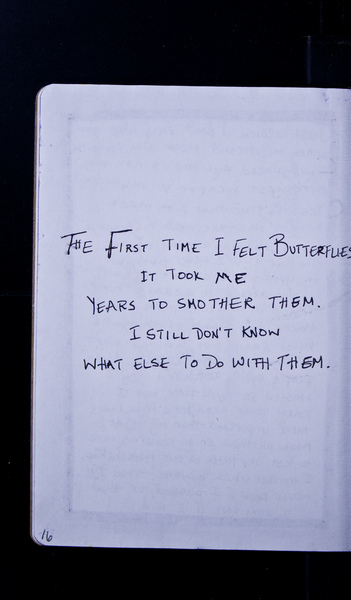 The First time I felt Butterflies
it took me
years to smother them.
I still don't know
what else to do with them.
16